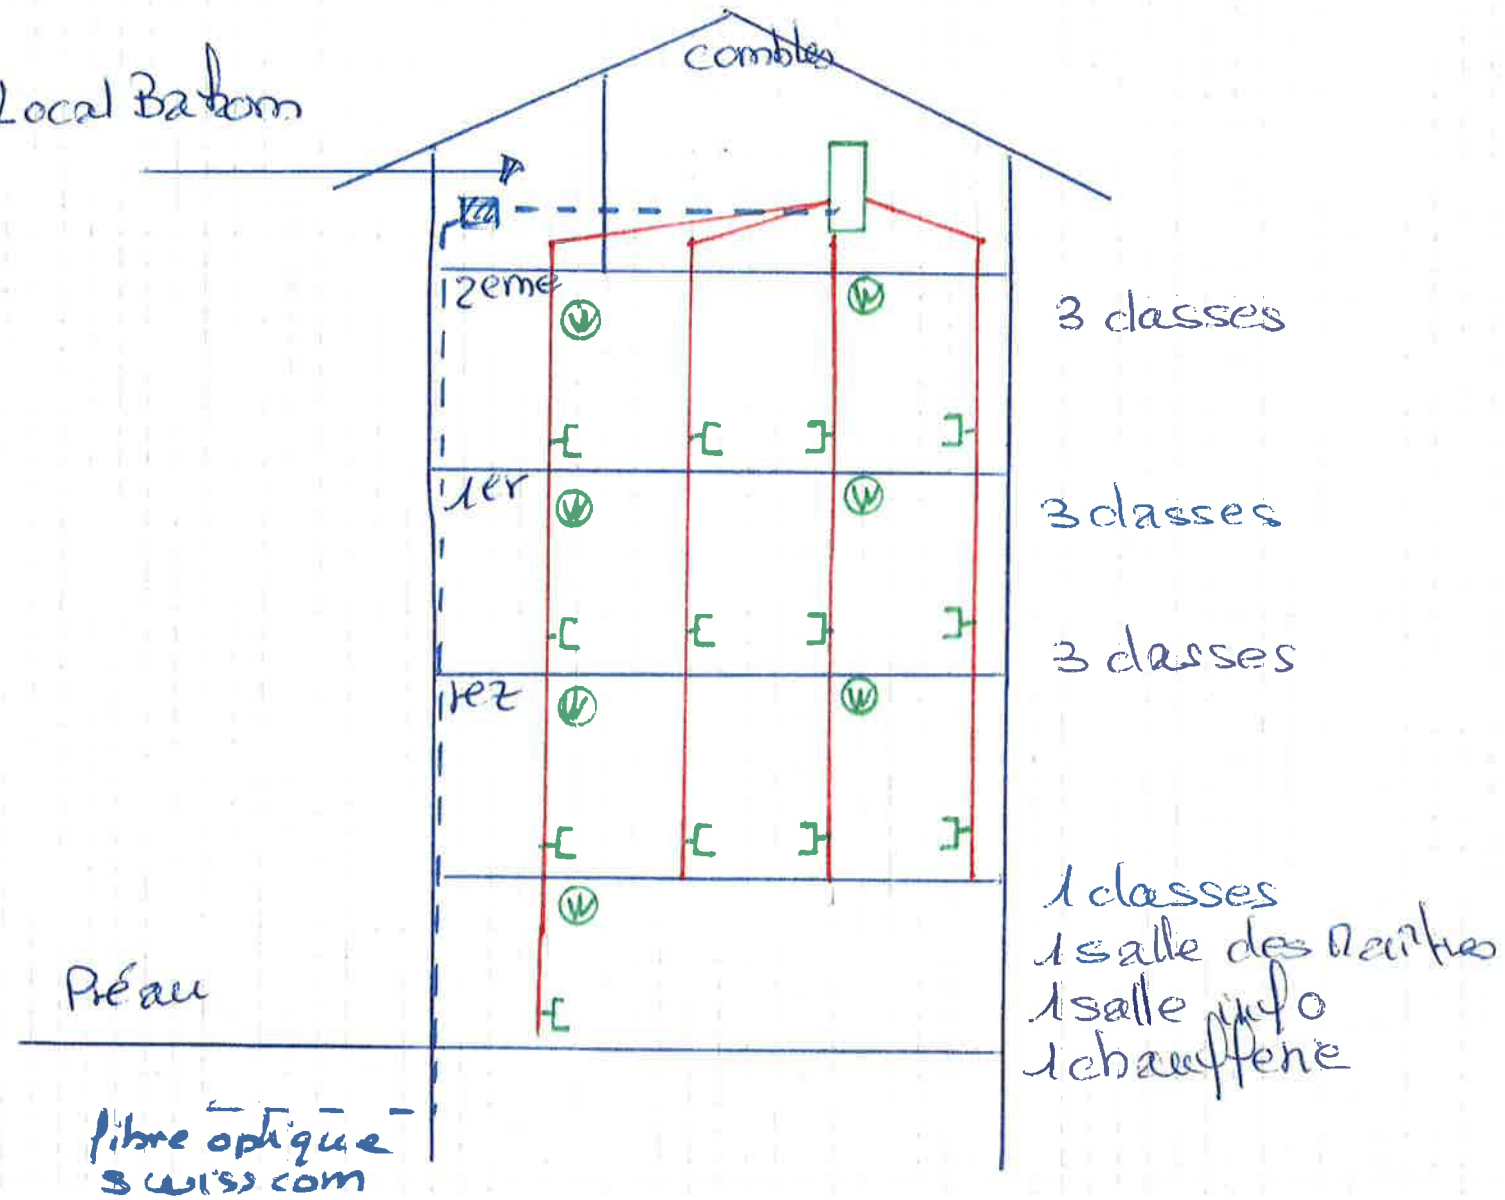 combles
Local Batcom
2eme
W
W
3 classes
1er
W
W
3 classes
3 classes
rez
W
W
W
1 classes
1 salle des Maîtres
1 salle info
1 chaufferie
Préau
fibre optique
swisscom